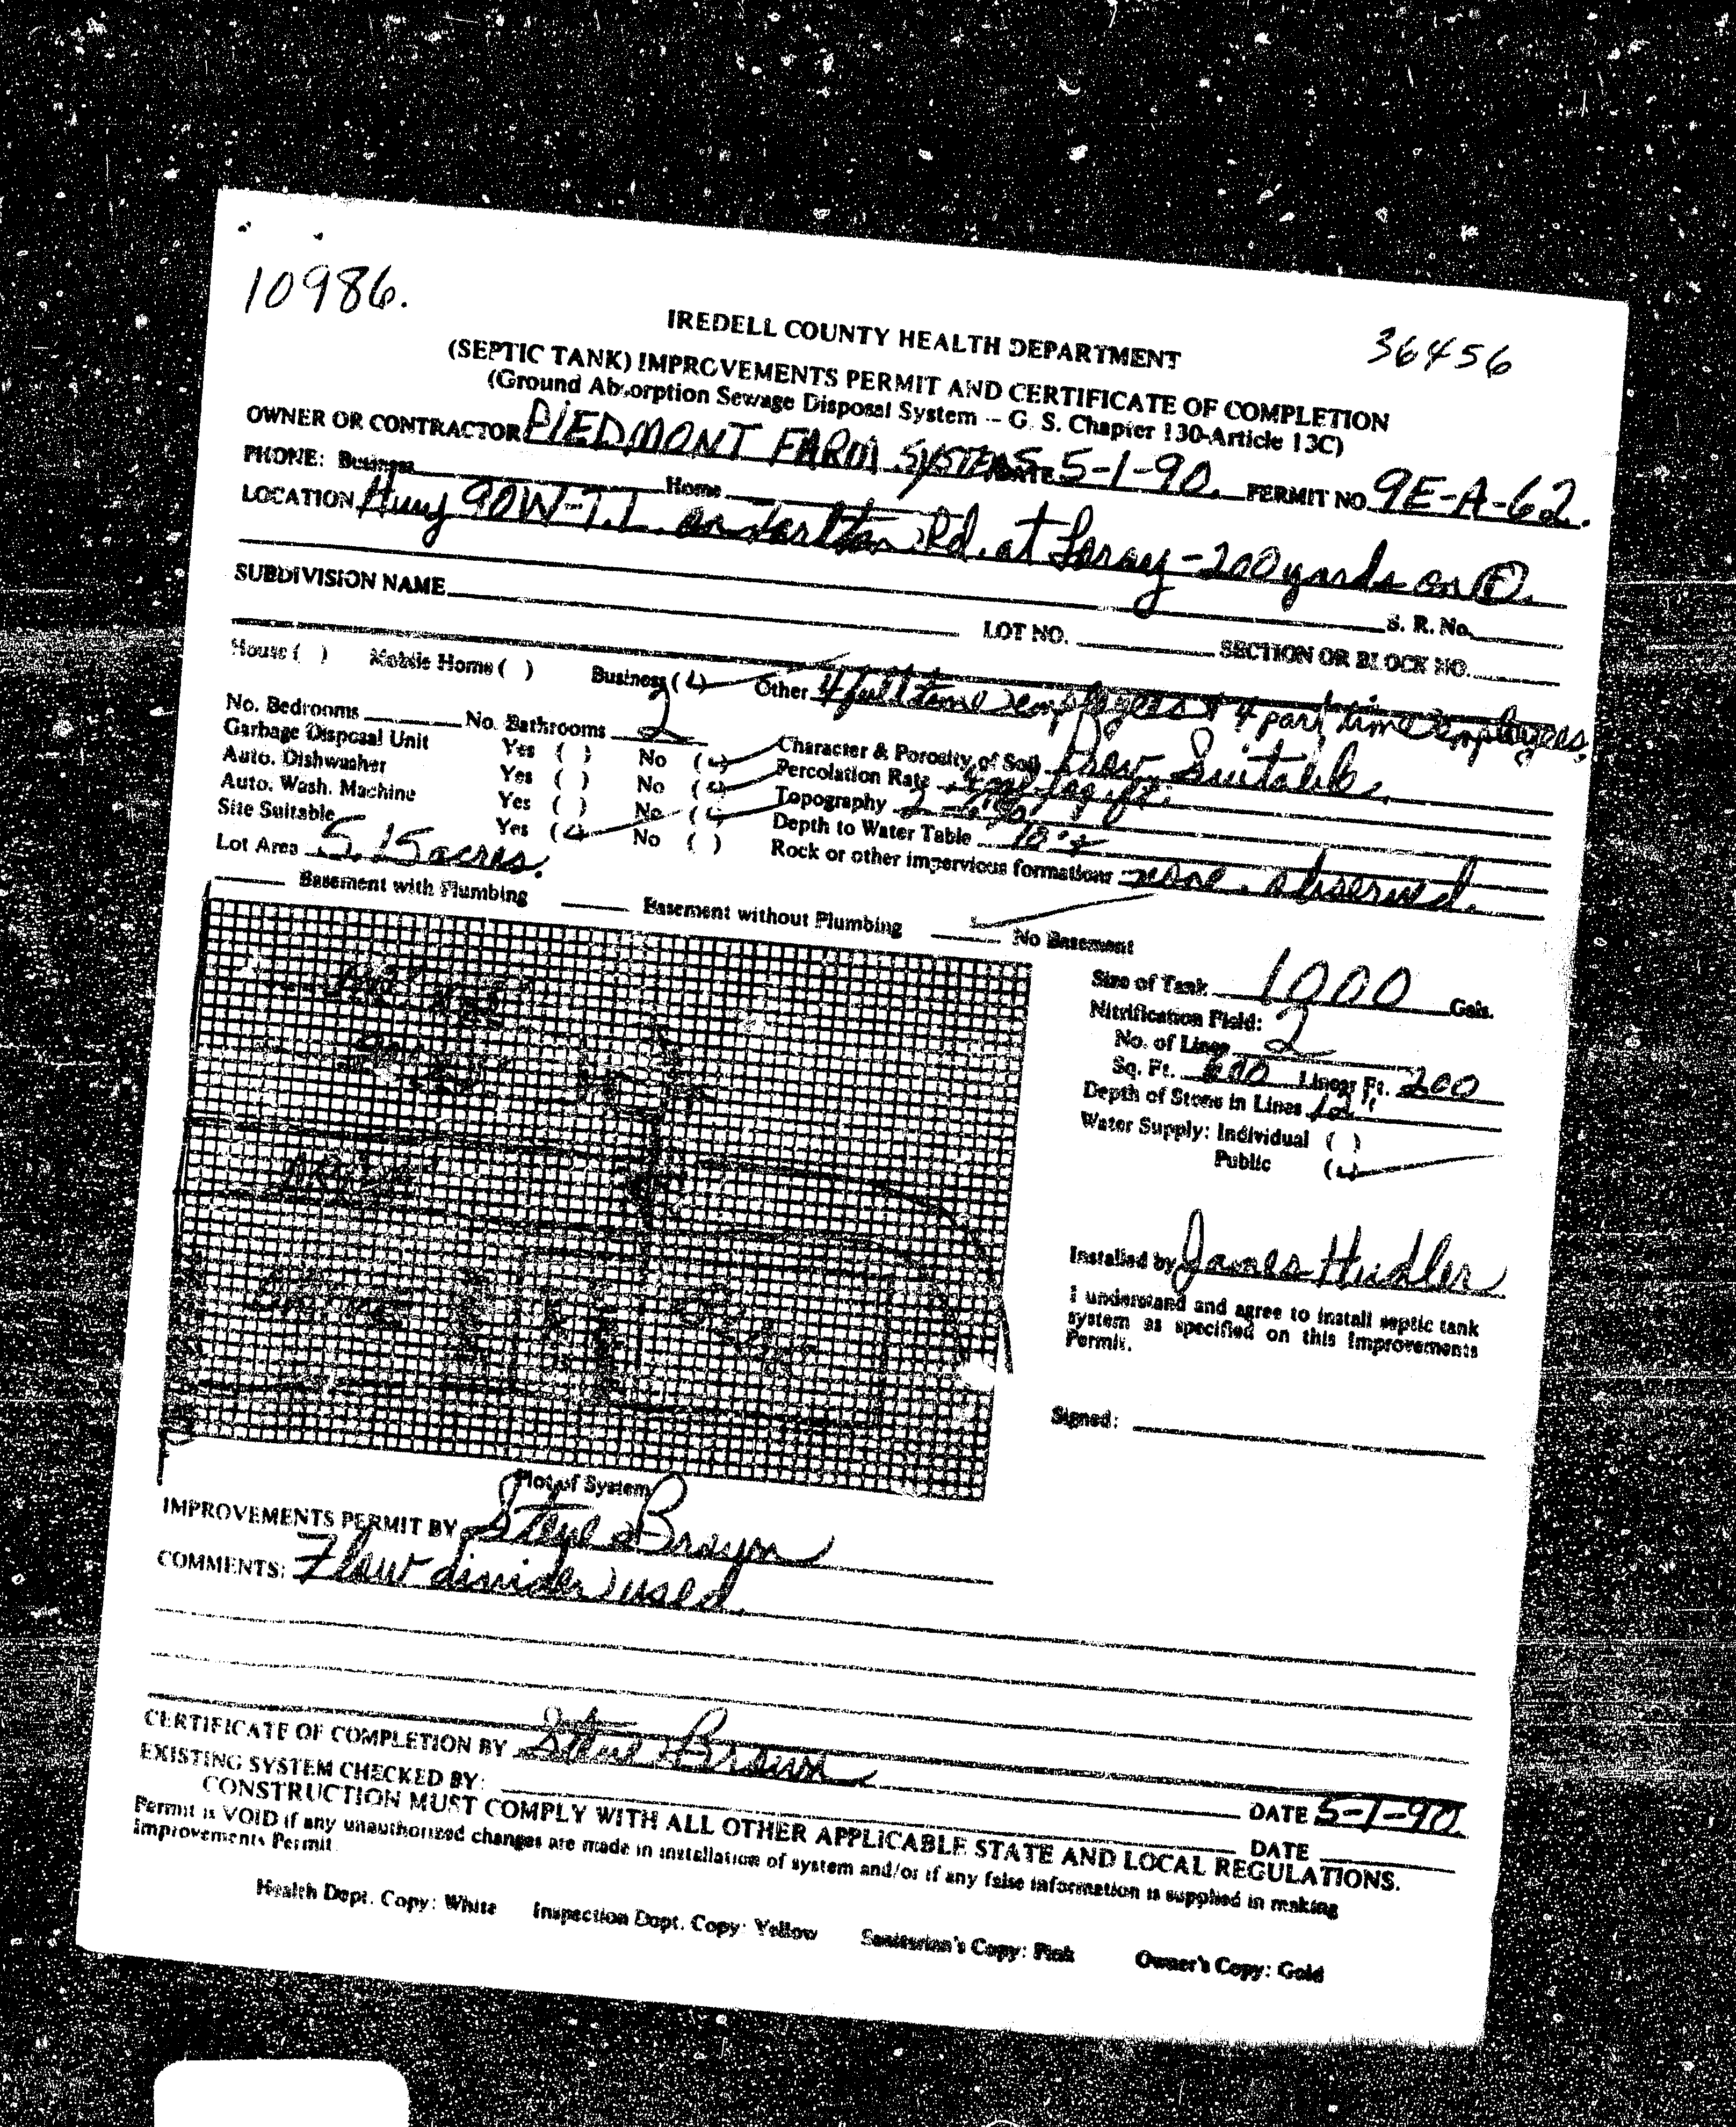 10986.
36456
IREDELL COUNTY HEALTH DEPARTMENT
(SEPTIC TANK) IMPROVEMENTS PERMIT AND CERTIFICATE OF COMPLETION
(Ground Absorption Sewage Disposal System -- G. S. Chapter 130-Article 13C)
OWNER OR CONTRACTOR PIEDMONT FARM SYSTEMS DATE 5-1-90. PERMIT NO. 9E-A-62.
PHONE: Business Home
LOCATION Hwy 90W-T.L. on Rd. at Loray-200 yards on
S. R. No.
SUBDIVISION NAME LOT NO. SECTION OR BLOCK NO.
House ( ) Mobile Home ( ) Business (✓) Other 4 full time employees & 4 part time employees.
No. Bedrooms No. Bathrooms 2
Garbage Disposal Unit Yes ( ) No (✓) Character & Porosity of Soil Prov. Suitable.
Auto. Dishwasher Yes ( ) No (✓) Percolation Rate
Auto. Wash. Machine Yes ( ) No (✓) Topography 2-6%
Site Suitable Yes (✓) No ( ) Depth to Water Table
Lot Area 5.15 acres. Rock or other impervious formations none observed.
Basement with Plumbing Basement without Plumbing ✓ No Basement
Size of Tank 1000 Gals.
Nitrification Field:
No. of Lines 2
Sq. Ft. 600 Linear Ft. 200
Depth of Stone in Lines 12"
Water Supply: Individual ( )
Public (✓)
Installed by James Hudler
I understand and agree to install septic tank
system as specified on this Improvements
Permit.
Signed:
Plot of System
IMPROVEMENTS PERMIT BY Steve Brown
COMMENTS: Flow divider used.
CERTIFICATE OF COMPLETION BY Steve Brown DATE 5-1-90.
EXISTING SYSTEM CHECKED BY: DATE
CONSTRUCTION MUST COMPLY WITH ALL OTHER APPLICABLE STATE AND LOCAL REGULATIONS.
Permit is VOID if any unauthorized changes are made in installation of system and/or if any false information is supplied in making
Improvements Permit.
Health Dept. Copy: White Inspection Dept. Copy: Yellow Sanitarian's Copy: Pink Owner's Copy: Gold